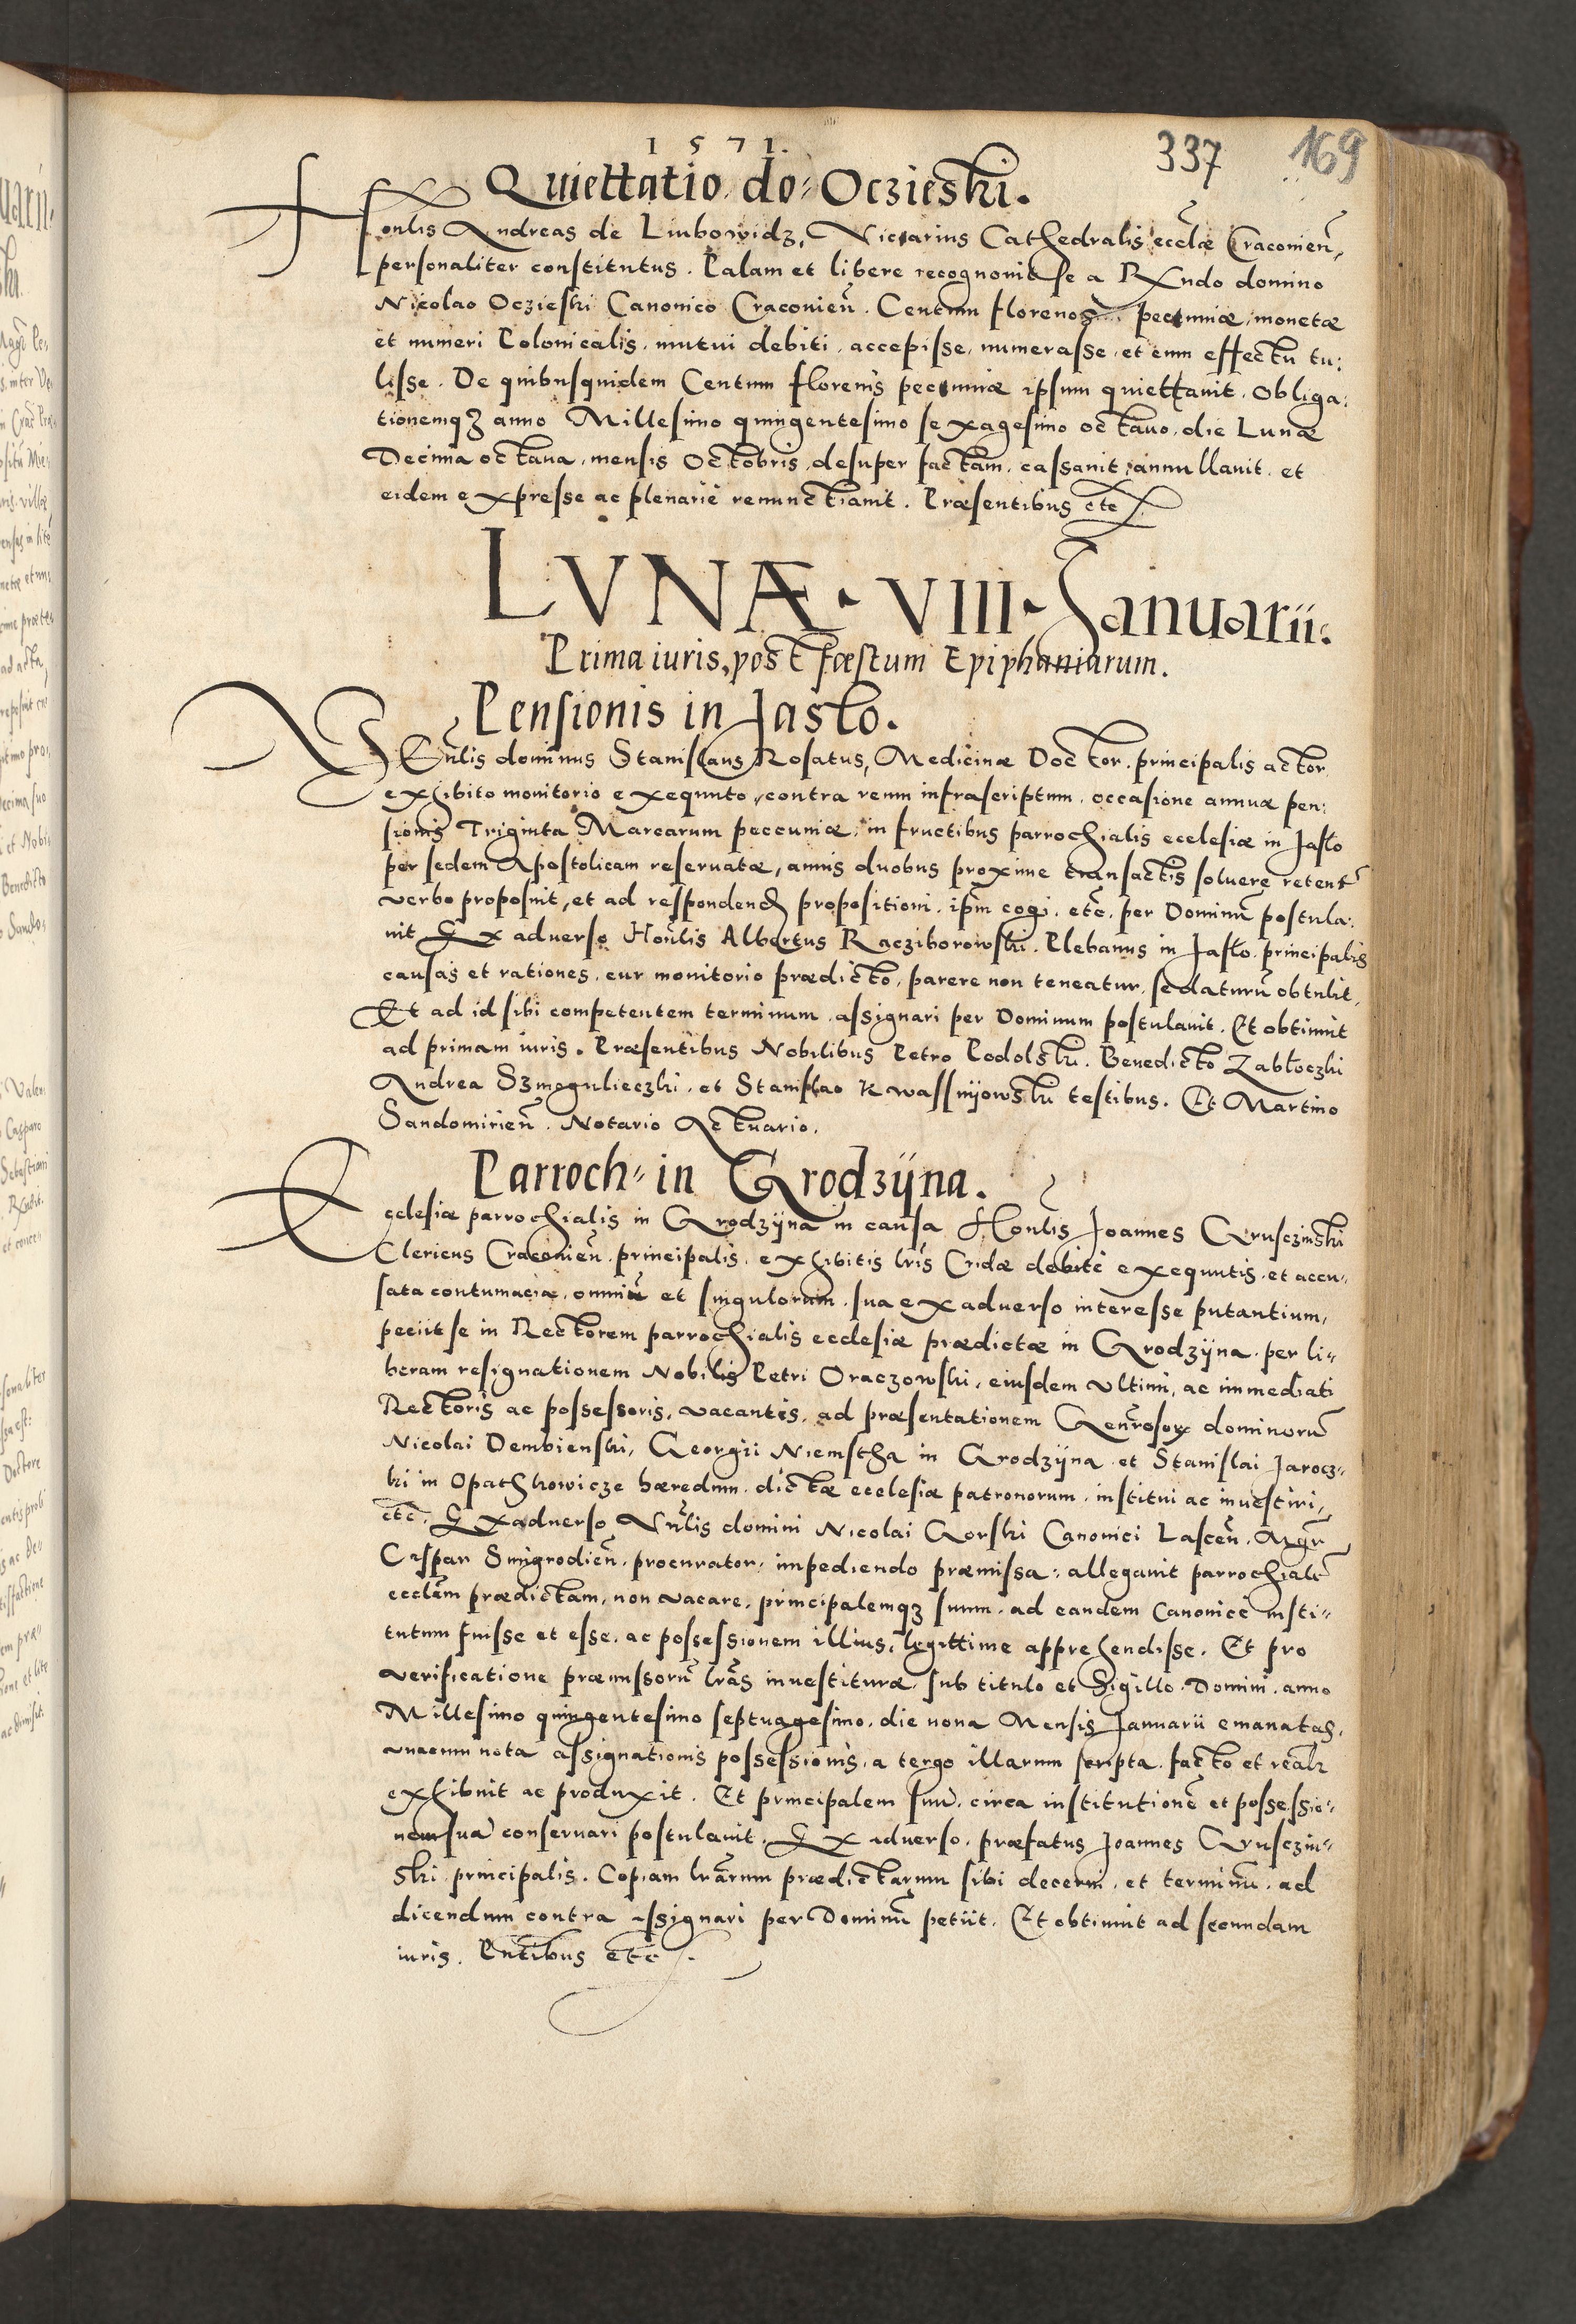 1571.
337 169
Quiettatio do: Oczieski.
Honlis Andreas de Liubowidz, Vicarius Cathedralis ecclae Craconien,
personaliter constitutus. Palam et libere recognouit se a Rndo domino
Nicolao Oczieski Canonico Craconien. Centum florenos pecuniæ, monetæ
et numeri Polonicalis, mutui debiti, accepisse, numerasse, et cum effectu tu:
lisse. De quibusquidem Centum florenis pecuniæ ipsum quiettauit. Obliga:
tionemq3 anno Millesimo quingentesimo sexagesimo octauo, die Lunæ
Decima octaua, mensis Octobris, desuper factam, cassauit, annullauit, et
eidem expresse ac plenarie renunctiauit. Præsentibus etc
LVNÆ. VIII. Januarii.
Prima iuris, post fæstum Epiphaniarum.
Pensionis in Jaslo.
Venlis dominus Stanislaus Rosatus, Medicinæ Doctor, principalis actor
exhibito monitorio exequuto, contra reum infrascriptum, occasione annuæ pen:
sionis Triginta Marcarum peccuniæ, in fructibus parrochialis ecclesiæ in Jaslo
per sedem Apostolicam reseruatæ, annis duobus proxime transactis soluere retent
verbo proposuit, et ad respondend propositioni, ipm cogi, etc. per Dominu postula:
uit Ex aduerso Honlis Albertus Racziborowski, Plebanus in Jaslo, principalis
causas et rationes, cur monitorio prædicto, parere non teneatur, se daturu obtulit,
Et ad id sibi competentem terminum, assignari per Dominum postulauit. Et obtinuit
ad primam iuris. Præsentibus Nobilibus Petro Podolski. Benedicto Zabłoczki
Andrea Szmogulieczki, et Stanislao Kwassnijowski testibus. Et Martino
Sandomirien. Notario Actuario.
Parroch: in Grodzÿna.
Ecclesiæ parrochialis in Grodzÿna in causa Honlis Joannes Gruscziński
Clericus Craconien, principalis, exhibitis lris Cridæ debite exequutis, et accu,,
sata contumacia, omniu et singulorum, sua ex aduerso interesse putantium,
peciit se in Rectorem parrochialis ecclesiæ prædictæ in Grodzÿna, per li,,
beram resignationem Nobilis Petri Oraczowski, eiusdem vltimi, ac immediati
Rectoris ac possessoris, vacantis, ad præsentationem Generosor dominoru
Nicolai Dembienski, Georgii Niemstha in Grodzÿna et Stanislai Jarocz,,
ki in Opathkowicze hæredum, dictæ ecclesiæ patronorum, institui ac inuestiri,
etc. Ex aduerso Vnlis domini Nicolai Gorski Canonici Lascen. Mgr
Caspar Smigrodien. procurator, impediendo præmissa, allegauit parrochiale
ecclam prædictam, non vacare, principalemq3 suum, ad eandem Canonice insti,,
tutum fuisse et esse, ac possessionem illius, legittime apprehendisse. Et pro
verificatione præmissoru lras inuestituræ, sub titulo et Sigillo Domini, anno
Millesimo quingentesimo septuagesimo, die nona Mensis Januarii emanatas,
vnacum nota assignationis possessionis, a tergo illarum scripta, facto et realr
exhibuit ac produxit. Et principalem suu, circa institutione et possessio,,
nem sua conseruari postulauit. Ex aduerso, præfatus Joannes Gruscziń,,
ski principalis. Copiam lrarum prædictarum sibi decerni, et terminu, ad
dicendum contra assignari per Dominu petiit. Et obtinuit ad secundam
iuris. Pntibus etc